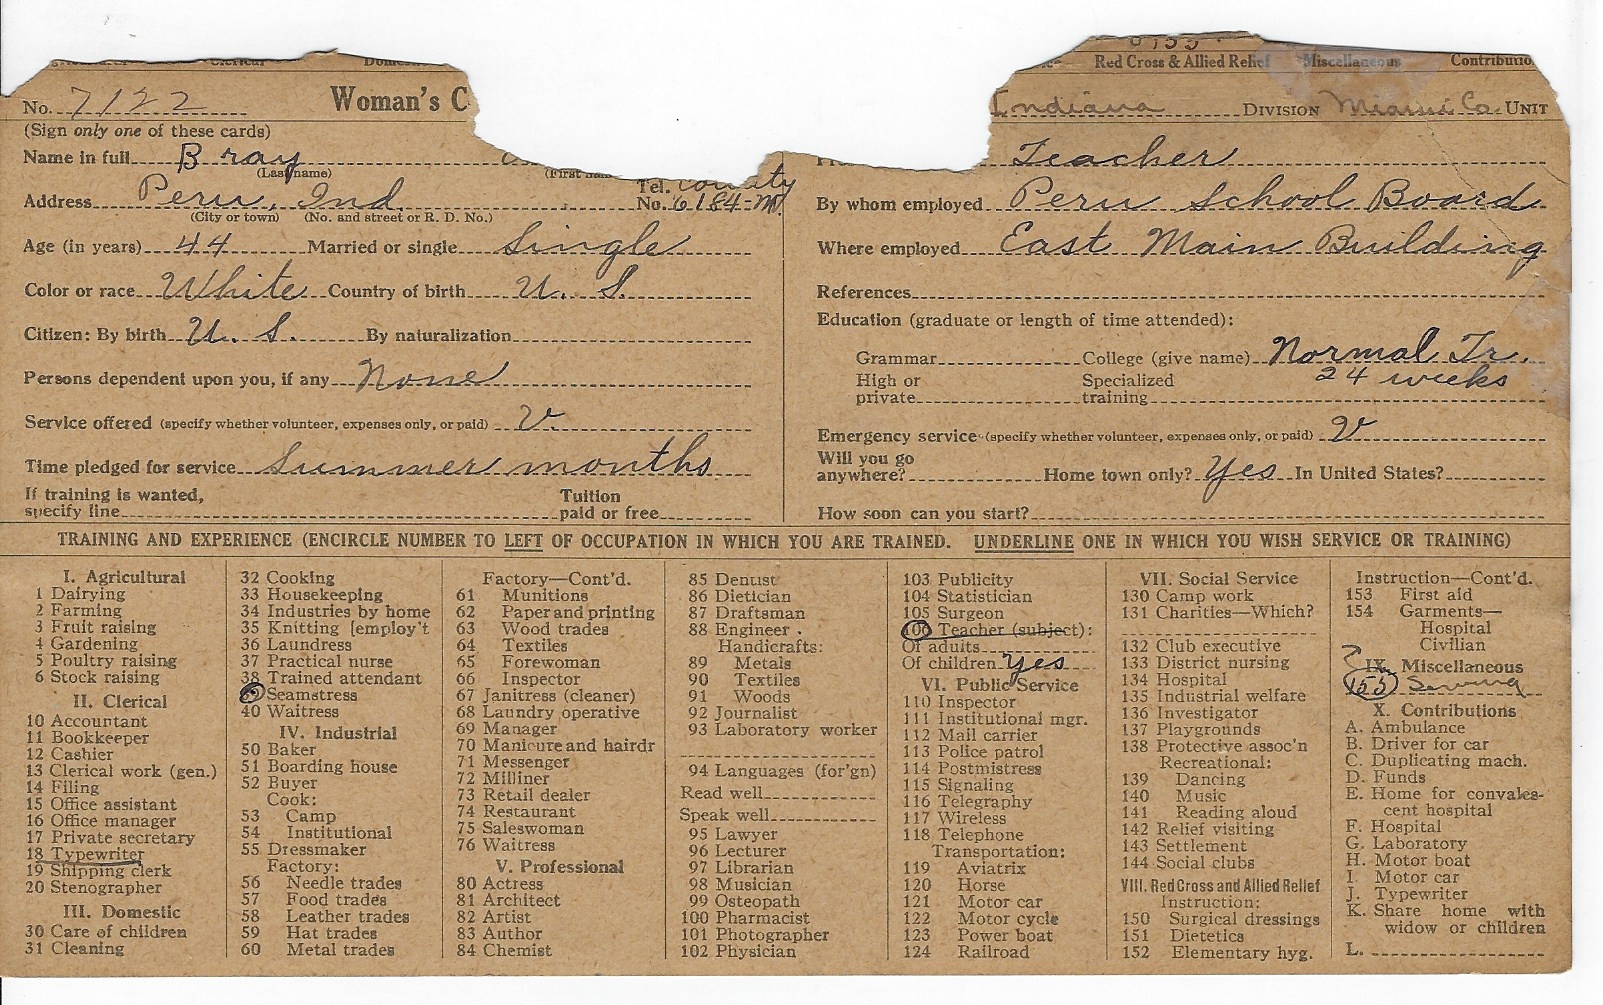 Red Cross & Allied Relief Miscellaneous
No. 7122 Woman's C Indiana DIVISION Miami Co. UNIT
(Sign only one of these cards)
Name in full Bray
(Last name)
Address Peru, Ind. Tel. County No. 6184-M
(City or town) (No. and street or R. D. No.)
Age (in years) 44 Married or single Single
Color or race White Country of birth U. S.
Citizen: By birth U. S. By naturalization
Persons dependent upon you, if any None
Service offered (specify whether volunteer, expenses only, or paid) V.
Time pledged for service Summer months
If training is wanted, specify line Tuition paid or free
Teacher
By whom employed Peru School Board
Where employed East Main Building
References
Education (graduate or length of time attended):
Grammar College (give name) Normal Tr.
High or private Specialized training 24 weeks
Emergency service (specify whether volunteer, expenses only, or paid) V
Will you go anywhere? Home town only? Yes In United States?
How soon can you start?
TRAINING AND EXPERIENCE (ENCIRCLE NUMBER TO LEFT OF OCCUPATION IN WHICH YOU ARE TRAINED. UNDERLINE ONE IN WHICH YOU WISH SERVICE OR TRAINING)
I. Agricultural
1 Dairying
2 Farming
3 Fruit raising
4 Gardening
5 Poultry raising
6 Stock raising
II. Clerical
10 Accountant
11 Bookkeeper
12 Cashier
13 Clerical work (gen.)
14 Filing
15 Office assistant
16 Office manager
17 Private secretary
18 Typewriter
19 Shipping clerk
20 Stenographer
III. Domestic
30 Care of children
31 Cleaning
32 Cooking
33 Housekeeping
34 Industries by home
35 Knitting [employ't
36 Laundress
37 Practical nurse
38 Trained attendant
39 Seamstress
40 Waitress
IV. Industrial
50 Baker
51 Boarding house
52 Buyer
Cook:
53 Camp
54 Institutional
55 Dressmaker
Factory:
56 Needle trades
57 Food trades
58 Leather trades
59 Hat trades
60 Metal trades
Factory—Cont'd.
61 Munitions
62 Paper and printing
63 Wood trades
64 Textiles
65 Forewoman
66 Inspector
67 Janitress (cleaner)
68 Laundry operative
69 Manager
70 Manicure and hairdr
71 Messenger
72 Milliner
73 Retail dealer
74 Restaurant
75 Saleswoman
76 Waitress
V. Professional
80 Actress
81 Architect
82 Artist
83 Author
84 Chemist
85 Dentist
86 Dietician
87 Draftsman
88 Engineer
Handicrafts:
89 Metals
90 Textiles
91 Woods
92 Journalist
93 Laboratory worker
94 Languages (for'gn)
Read well
Speak well
95 Lawyer
96 Lecturer
97 Librarian
98 Musician
99 Osteopath
100 Pharmacist
101 Photographer
102 Physician
103 Publicity
104 Statistician
105 Surgeon
106 Teacher (subject):
Of adults
Of children Yes
VI. Public Service
110 Inspector
111 Institutional mgr.
112 Mail carrier
113 Police patrol
114 Postmistress
115 Signaling
116 Telegraphy
117 Wireless
118 Telephone
Transportation:
119 Aviatrix
120 Horse
121 Motor car
122 Motor cycle
123 Power boat
124 Railroad
VII. Social Service
130 Camp work
131 Charities—Which?
132 Club executive
133 District nursing
134 Hospital
135 Industrial welfare
136 Investigator
137 Playgrounds
138 Protective assoc'n
Recreational:
139 Dancing
140 Music
141 Reading aloud
142 Relief visiting
143 Settlement
144 Social clubs
VIII. Red Cross and Allied Relief
Instruction:
150 Surgical dressings
151 Dietetics
152 Elementary hyg.
Instruction—Cont'd.
153 First aid
154 Garments—
Hospital
Civilian
IX. Miscellaneous
155 Sewing
X. Contributions
A. Ambulance
B. Driver for car
C. Duplicating mach.
D. Funds
E. Home for convales-
cent hospital
F. Hospital
G. Laboratory
H. Motor boat
I. Motor car
J. Typewriter
K. Share home with
widow or children
L.